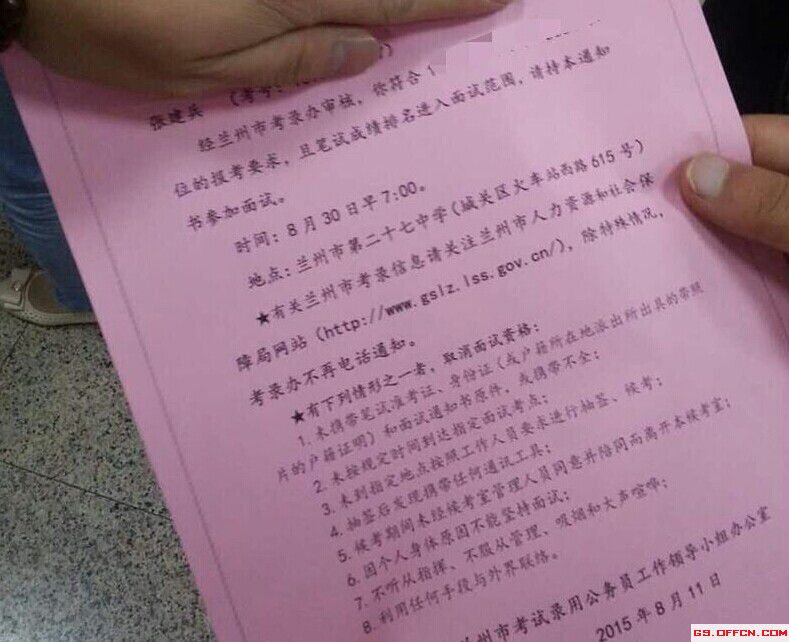 张建兵 (考号:
经兰州市考录办审核，你符合
位的报考要求，且笔试成绩排名进入面试范围，请持本通知
书参加面试。
时间：8月30日早7:00。
地点：兰州市第二十七中学(城关区火车站西路615号)
★有关兰州市考录信息请关注兰州市人力资源和社会保
障局网站（http://www.gslz.lss.gov.cn/），除特殊情况，
考录办不再电话通知。
★有下列情形之一者，取消面试资格：
1.未携带笔试准考证、身份证（或户籍所在地派出所出具的带照
片的户籍证明）和面试通知书原件，或携带不全；
2.未按规定时间到达指定面试考点；
3.未到指定地点按照工作人员要求进行抽签、候考；
4.抽签后发现携带任何通讯工具；
5.候考期间未经候考室管理人员同意并陪同而离开本候考室；
6.因个人身体原因不能坚持面试；
7.不听从指挥、不服从管理、吸烟和大声喧哗；
8.利用任何手段与外界联络。
兰州市考试录用公务员工作领导小组办公室
2015年8月11日
GS.OFFCN.COM